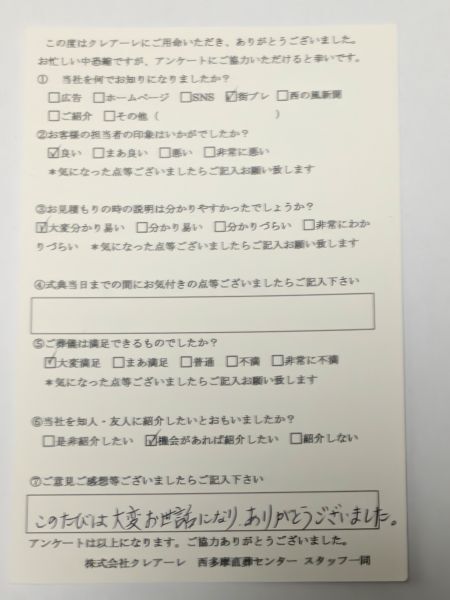 この度はクレアーレにご用命いただき、ありがとうございました。
お忙しい中恐縮ですが、アンケートにご協力いただけると幸いです。
① 当社を何でお知りになりましたか？
□広告 □ホームページ □SNS ☑街プレ □西の風新聞
□ご紹介 □その他（ ）
②お客様の担当者の印象はいかがでしたか？
☑良い □まあ良い □悪い □非常に悪い
＊気になった点等ございましたらご記入お願い致します
③お見積もりの時の説明は分かりやすかったでしょうか？
☑大変分かり易い □分かり易い □分かりづらい □非常にわか
りづらい ＊気になった点等ございましたらご記入お願い致します
④式典当日までの間にお気付きの点等ございましたらご記入下さい
⑤ご葬儀は満足できるものでしたか？
☑大変満足 □まあ満足 □普通 □不満 □非常に不満
＊気になった点等ございましたらご記入お願い致します
⑥当社を知人・友人に紹介したいとおもいましたか？
□是非紹介したい ☑機会があれば紹介したい □紹介しない
⑦ご意見ご感想等ございましたらご記入下さい
このたびは大変お世話になり、ありがとうございました。
アンケートは以上になります。ご協力ありがとうございました。
株式会社クレアーレ 西多摩直葬センター スタッフ一同